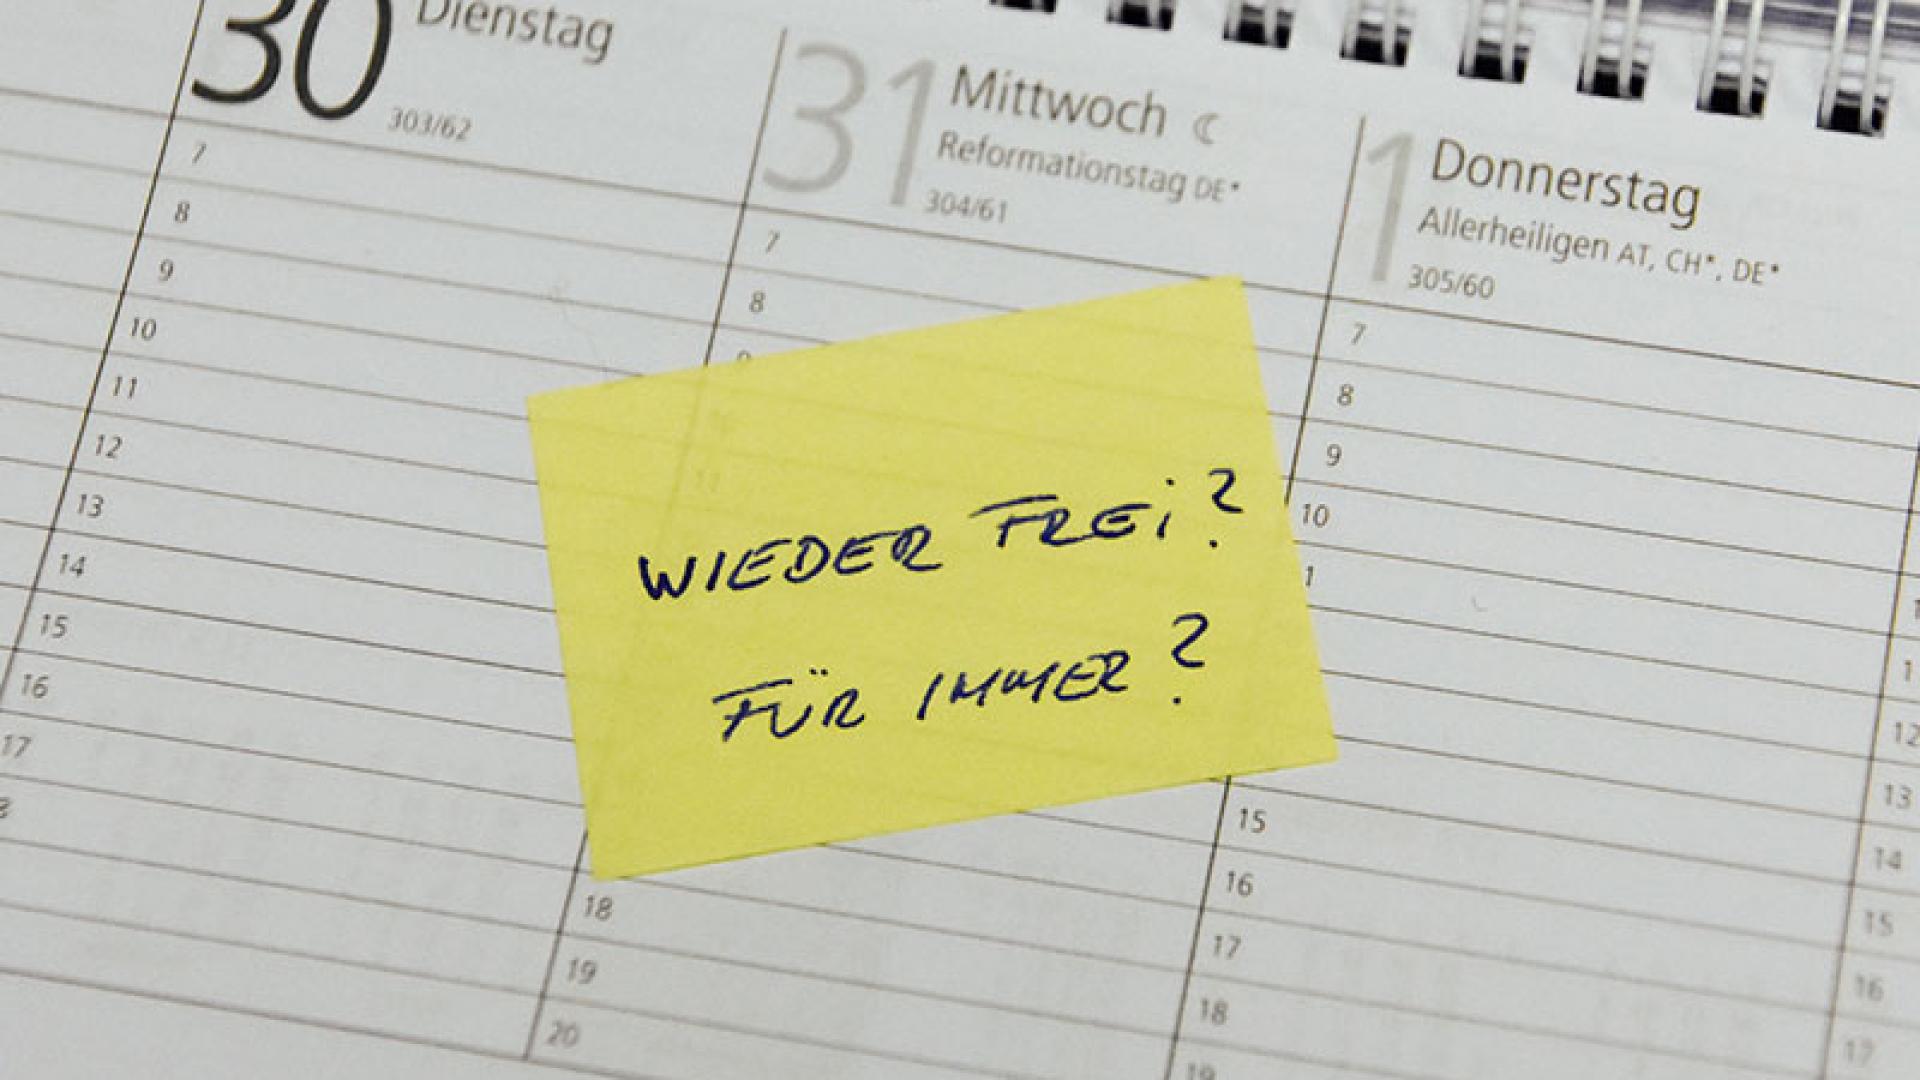 30 Dienstag
303/62
7
8
9
10
11
12
13
14
15
16
17
31 Mittwoch
Reformationstag DE*
304/61
7
8
18
19
20
1 Donnerstag
Allerheiligen AT, CH*, DE*
305/60
7
8
9
10
15
16
17
18
19
12
13
14
15
16
17
WIEDER FREI?
FÜR IMMER?